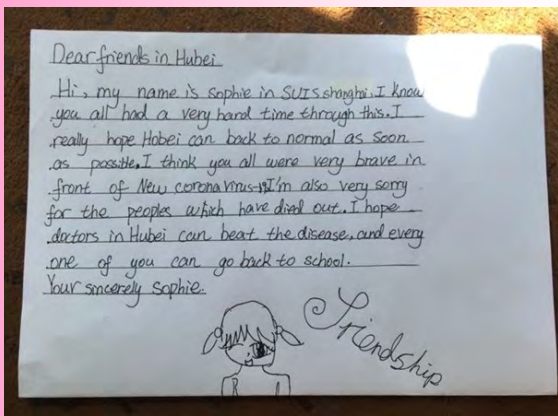 Dear friends in Hubei
Hi, my name is sophie in SUIS shanghai. I know
you all had a very hard time through this. I
really hope Hobei can back to normal as soon
as possible, I think you all were very brave in
front of New corona virus-19 I'm also very sorry
for the peoples which have died out. I hope
doctors in Hubei can beat the disease, and every
one of you can go back to school.
Your sincerely Sophie.
Friendship